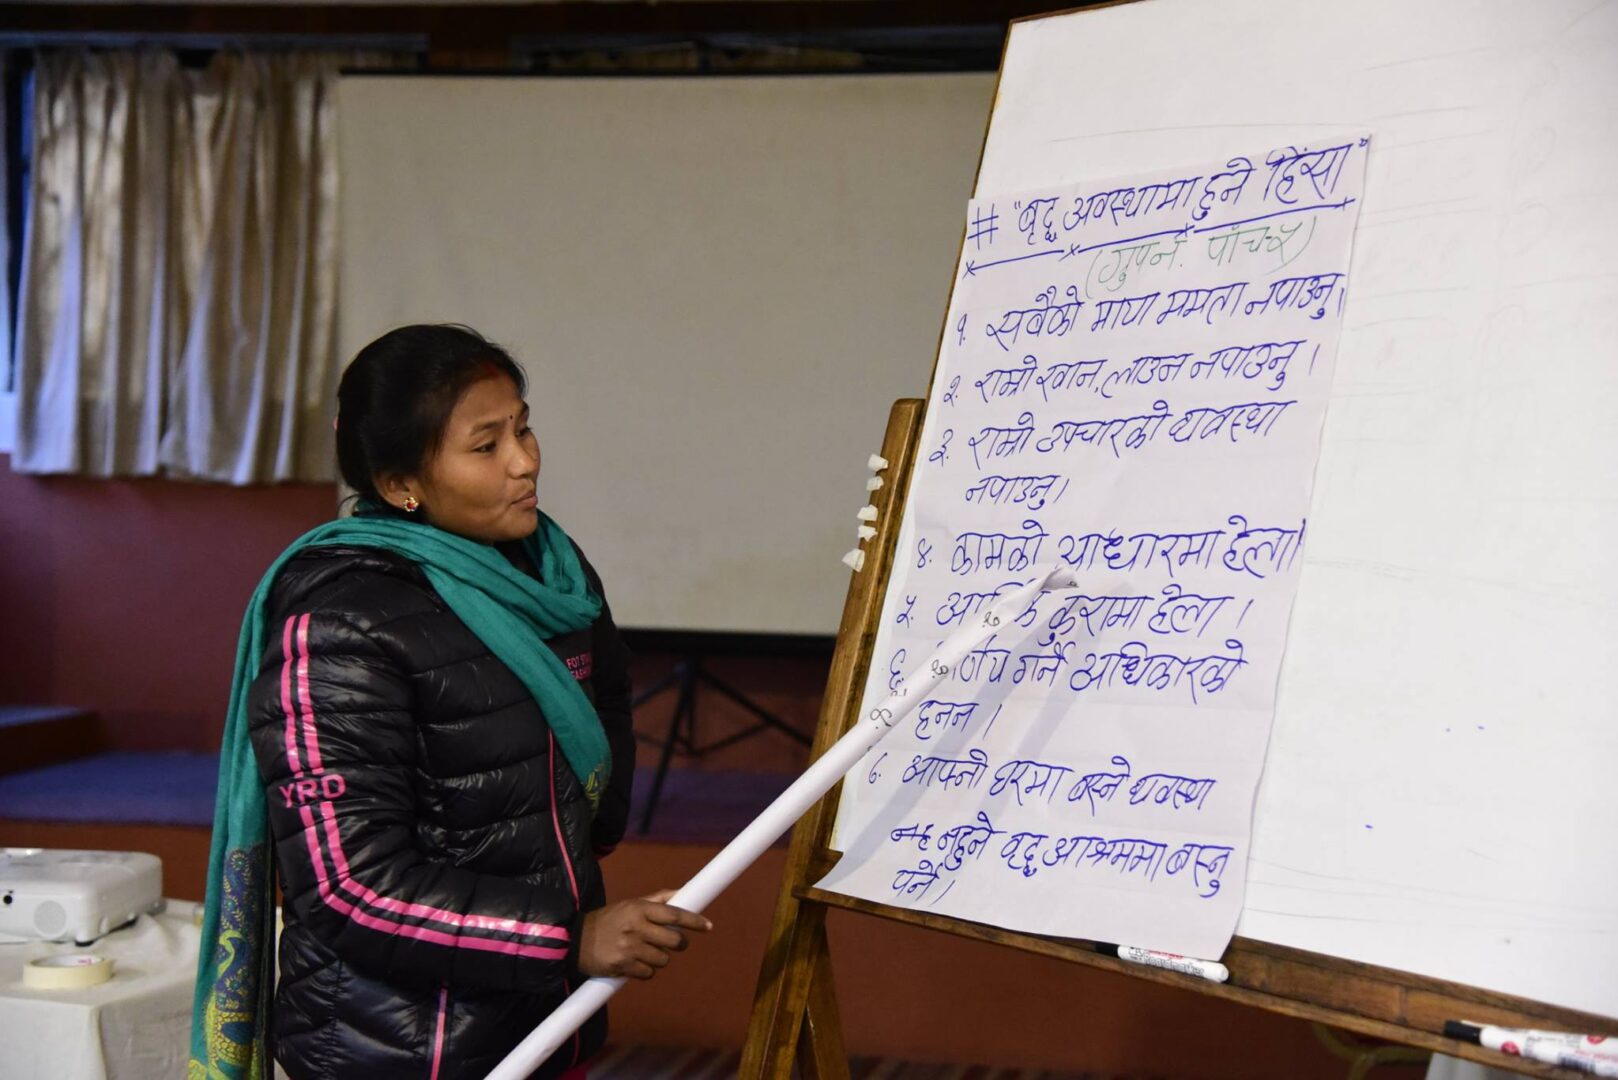 # "बृद्ध अवस्थामा हुने हिंसा"
(ग्रुप नं. पाँच-५)
१. सबैको माया ममता नपाउनु।
२. राम्रो खान, लाउन नपाउनु।
३. राम्रो उपचारको व्यवस्था
नपाउनु।
४. कामको आधारमा हेला।
५. आर्थिक कुरामा हेला।
६. निर्णय गर्ने अधिकारको
हनन।
आफ्नो घरमा बस्ने व्यवस्था
नहुने वृद्ध आश्रममा बस्नु
पर्ने।
YRD